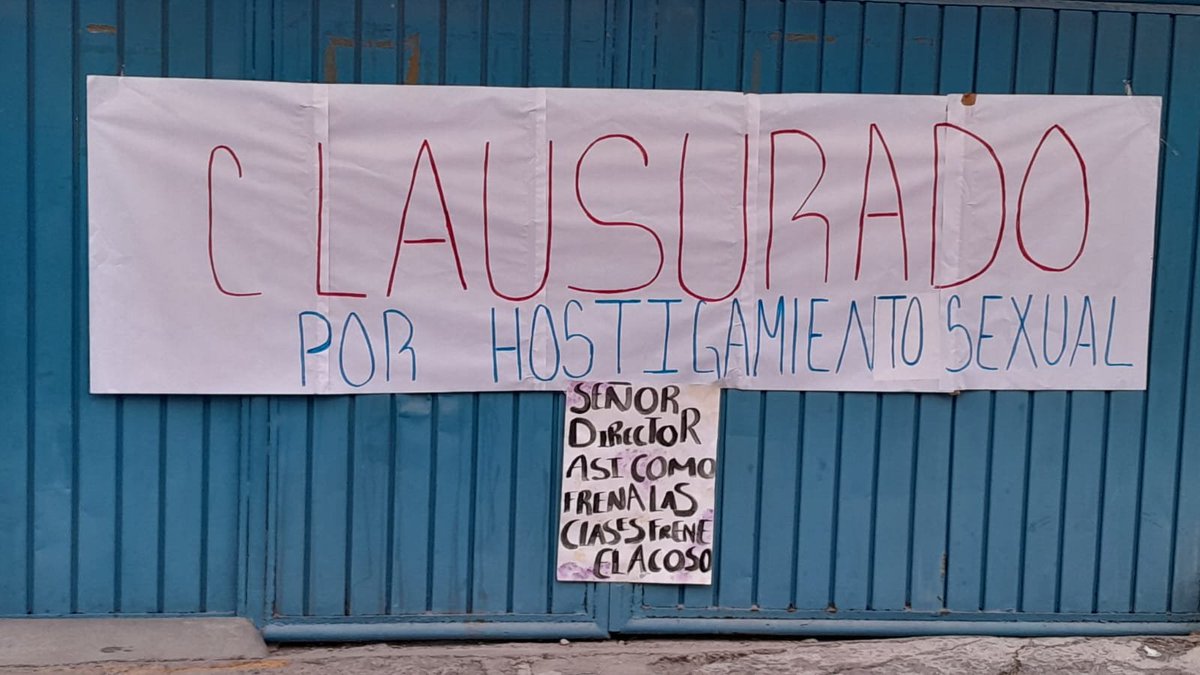 CLAUSURADO
POR HOSTIGAMIENTO SEXUAL
SEÑOR
DIRECTOR
ASI COMO
FRENA LAS
CLASES FRENE
EL ACOSO